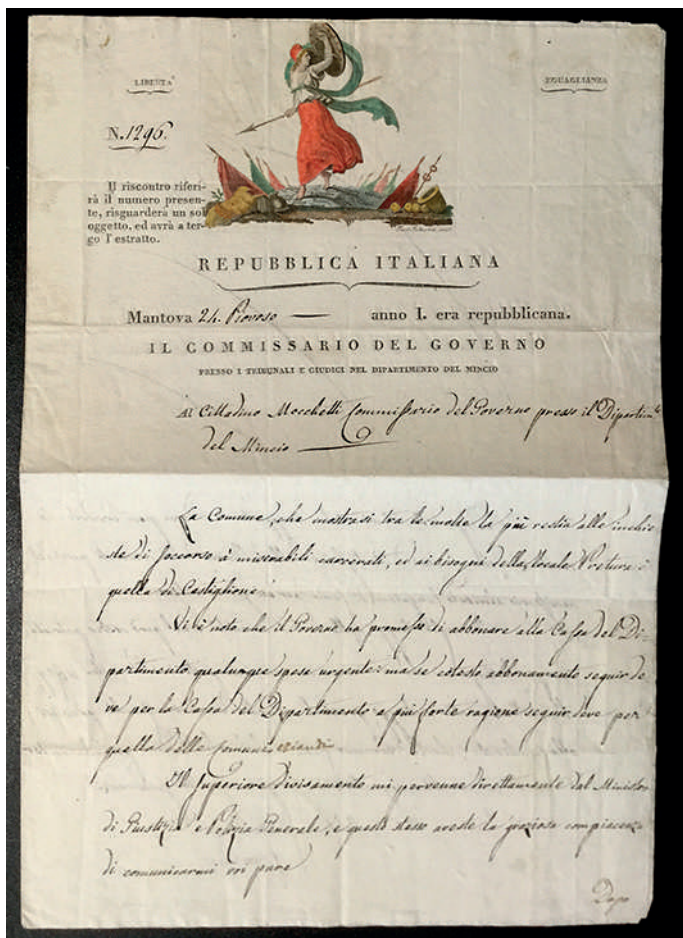 LIBERTA'
EGUAGLIANZA
N. 1296.
Il riscontro riferi-
rà il numero presen-
te, risguarderà un sol
oggetto, ed avrà a ter-
go l'estratto.
REPUBBLICA ITALIANA
Mantova 24. Piovoso — anno I. era repubblicana.
IL COMMISSARIO DEL GOVERNO
PRESSO I TRIBUNALI E GIUDICI NEL DIPARTIMENTO DEL MINCIO
Al Cittadino Mocchetti Commissario del Governo presso il Dipartim.to
del Mincio
La Comune, che mostrasi tra le molte la più restia alle inchie
ste di soccorso a' miserabili carcerati, ed ai bisogni della locale Pretura è
quella di Castiglione.
Vi è noto che il Governo ha promesso di abbonare alla Cassa del Di-
partimento qualunque spesa urgente: ma se cotesto abbonamento seguir de
ve per la Cassa del Dipartimento a più forte ragione seguir deve per
quella delle Comuni eziandi
Il Superiore divisamento mi pervenne direttamente dal Ministro
di Giustizia e Polizia Generale, e questo stesso aveste la graziosa compiacenza
di comunicarmi voi pure
Dopo